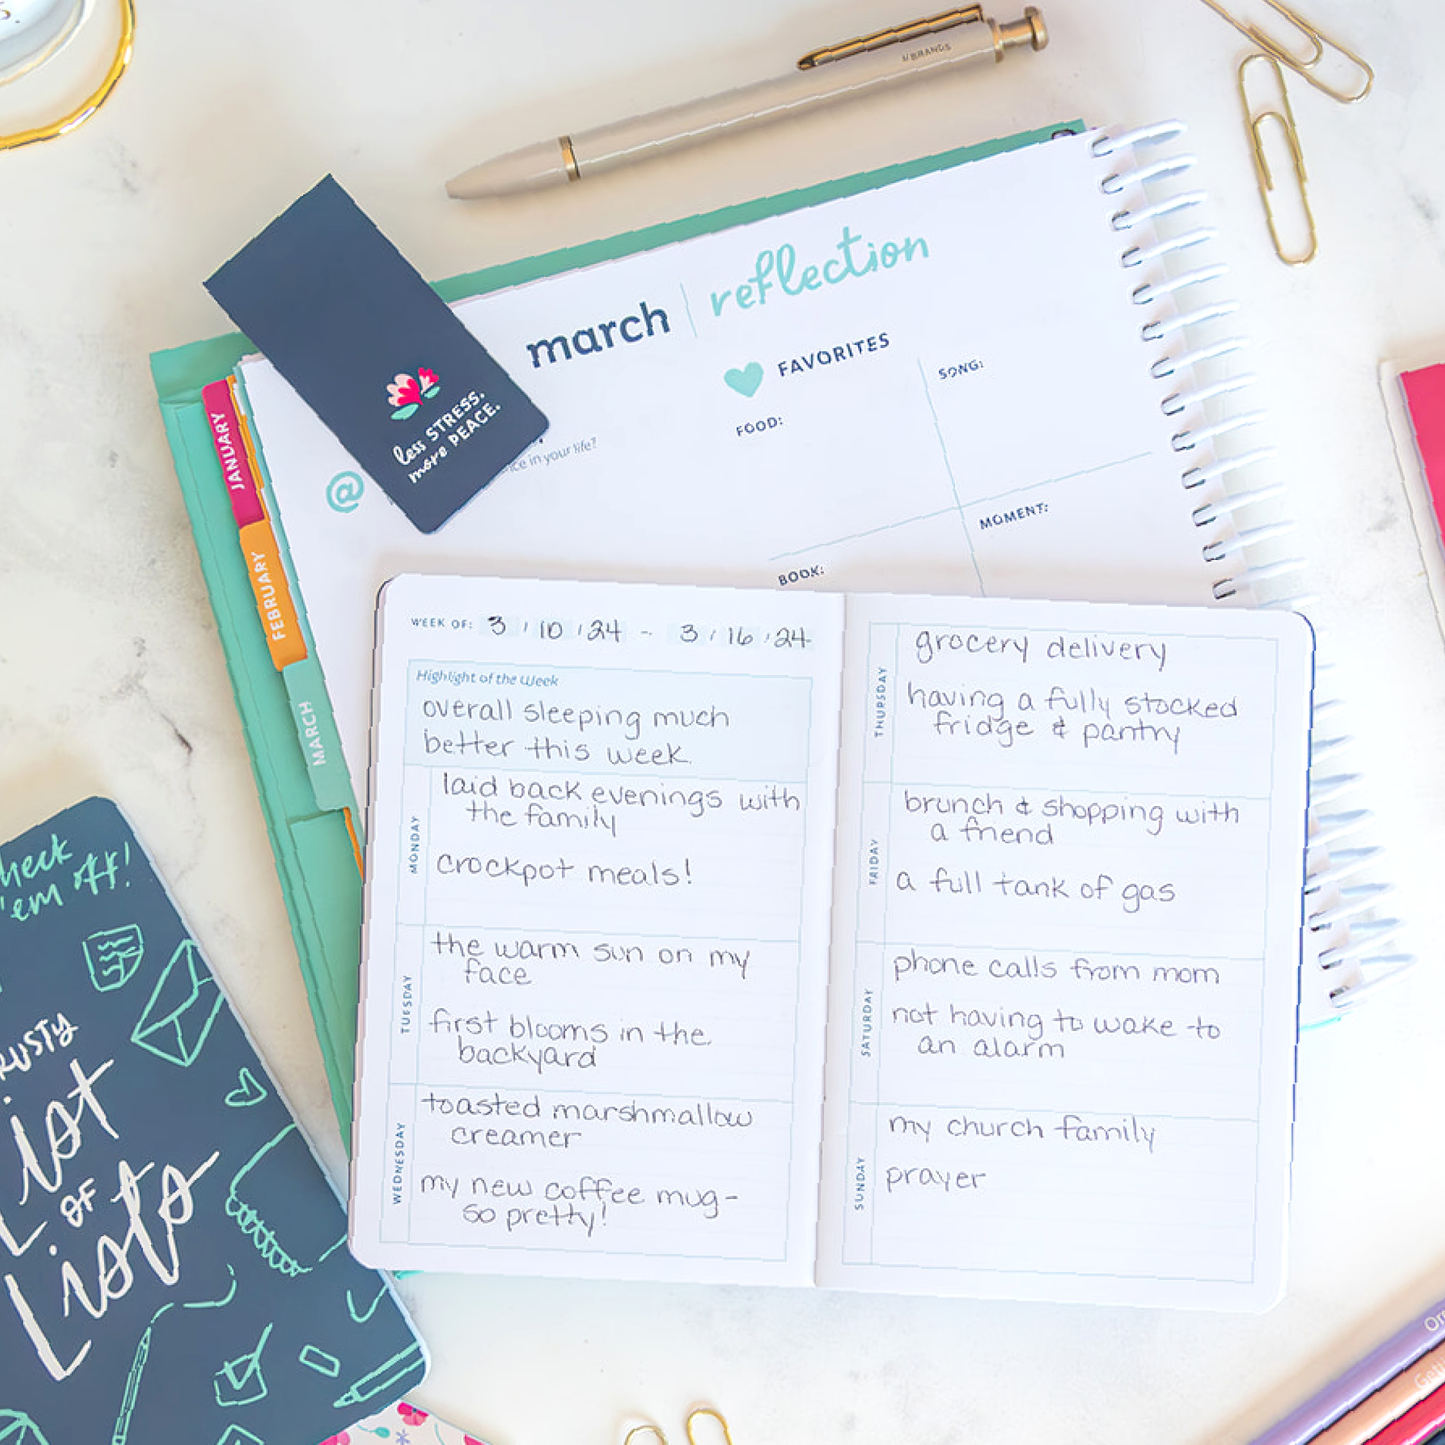 %BRANDS
march | reflection
FAVORITES
SONG:
FOOD:
MOMENT:
BOOK:
@
in your life?
less STRESS.
more PEACE.
JANUARY
FEBRUARY
MARCH
WEEK OF: 3 / 10 / 24 - 3 / 16 / 24
Highlight of the Week
overall sleeping much
better this week.
MONDAY
laid back evenings with
the family
crockpot meals!
TUESDAY
the warm sun on my
face
first blooms in the
backyard
WEDNESDAY
toasted marshmallow
creamer
my new coffee mug-
so pretty!
THURSDAY
grocery delivery
having a fully stocked
fridge & pantry
FRIDAY
brunch & shopping with
a friend
a full tank of gas
SATURDAY
phone calls from mom
not having to wake to
an alarm
SUNDAY
my church family
prayer
heck
'em off!
RUSTY
List
OF
Lists